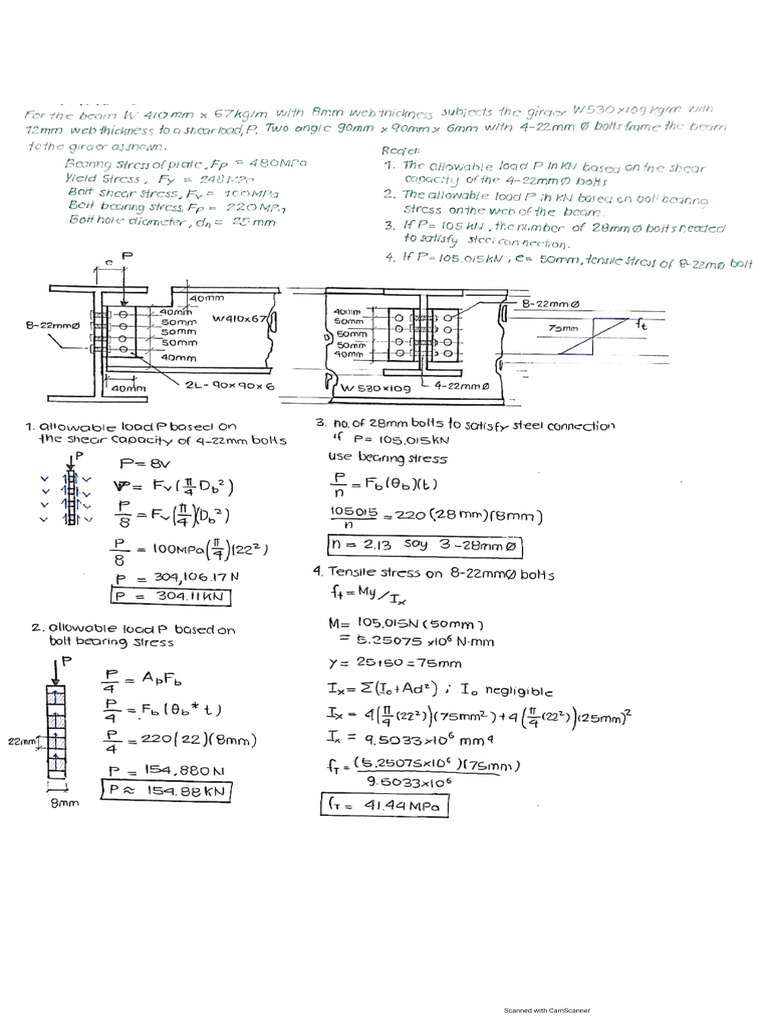 For the beam W 410mm x 67kg/m with 8mm web thickness subjects the girder W530x109 kg/m with
12mm web thickness to a shear load, P. Two angle 90mm x 90mm x 6mm with 4-22mm Ø bolts frame the beam
to the girder as shown.
Bearing stress of plate, Fp = 480MPa
Yield Stress, Fy = 248MPa
Bolt shear stress, Fv = 100MPa
Bolt bearing stress, Fp = 220MPa
Bolt hole diameter, dn = 25mm
Req'd:
1. The allowable load P in KN based on the shear
capacity of the 4-22mm Ø bolts
2. The allowable load P in KN based on bolt bearing
stress on the web of the beam.
3. If P= 105KN, the number of 28mmØ bolts needed
to satisfy steel connection.
4. If P=105.015KN, e= 50mm, tensile stress of 8-22mØ bolt
P
e
40mm
8-22mmØ
40mm
50mm
50mm
50mm
40mm
W410x67
40mm
2L-90x90x6
40mm
50mm
50mm
50mm
40mm
8-22mmØ
W 530x109
4-22mmØ
75mm
ft
1. allowable load P based on
the shear capacity of 4-22mm bolts
P
v v
v v
v v
v v
P=8V
V= Fv(π/4 Db²)
P/8 = Fv(π/4)(Db²)
P/8 = 100MPa(π/4)(22²)
P = 304,106.17N
P = 304.11KN
2. allowable load P based on
bolt bearing stress
P
22mm
8mm
P/4 = ApFb
P/4 = Fb(θb*t)
P/4 = 220(22)(8mm)
P = 154,880N
P ≈ 154.88KN
3. no. of 28mm bolts to satisfy steel connection
if P= 105.015KN
use bearing stress
P/n = Fb(θb)(t)
105015/n = 220(28mm)(8mm)
n = 2.13 say 3-28mmØ
4. Tensile stress on 8-22mmØ bolts
ft = My/Ix
M= 105,015N(50mm)
= 5.25075x10⁶ N·mm
y = 25+50=75mm
Ix = Σ(Io+Ad²) ; Io negligible
Ix = 4(π/4(22²))(75mm²)+4(π/4(22²))(25mm)²
Ix = 9.5033x10⁶ mm⁴
fT = (5.25075x10⁶)(75mm)/9.5033x10⁶
fT = 41.44MPa
Scanned with CamScanner